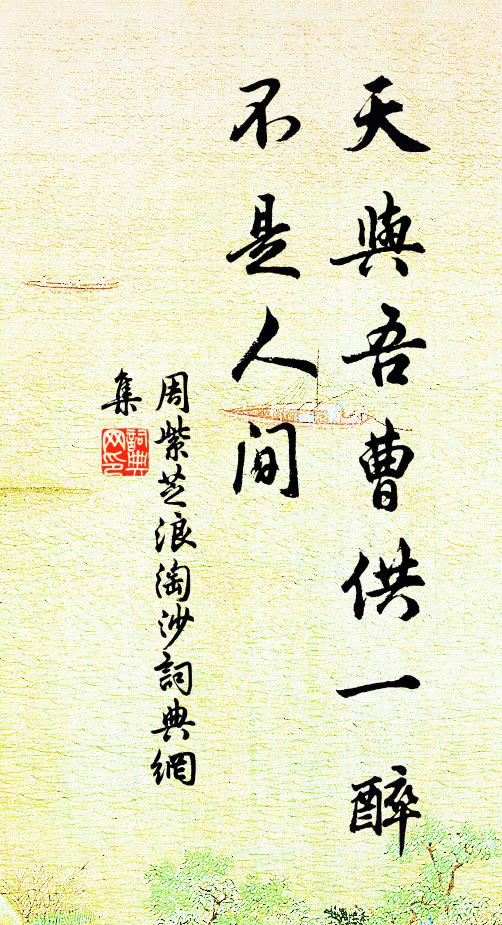 天與吾曹供一醉
不是人間
周紫芝浪淘沙詞典網
集
詞典
网印